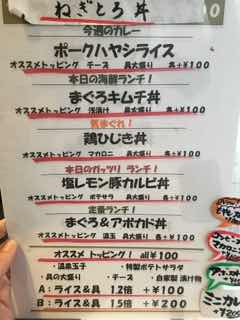 ねぎとろ丼
今週のカレー
ポークハヤシライス
オススメトッピング チーズ 具大盛り 各+¥100
本日の海鮮ランチ!
まぐろキムチ丼
オススメトッピング 浅漬け 具大盛り 各+¥100
気まぐれ!
鶏ひじき丼
オススメトッピング マカロニ 具大盛り 各+¥100
本日のガッツリ ランチ!
塩レモン豚カルビ丼
オススメトッピング ポテサラ 具大盛り 各+¥100
定番ランチ!
まぐろ&アボカド丼
オススメトッピング 温玉 具大盛り 各+¥100
オススメ トッピング! all¥100
・温泉玉子 ・特製ポテトサラダ
・具の大盛り ・チーズ ・自家製 漬け物
A:ライス&具 1.2倍 +¥100
B:ライス&具 1.5倍 +¥200
ミニカレー
+¥200